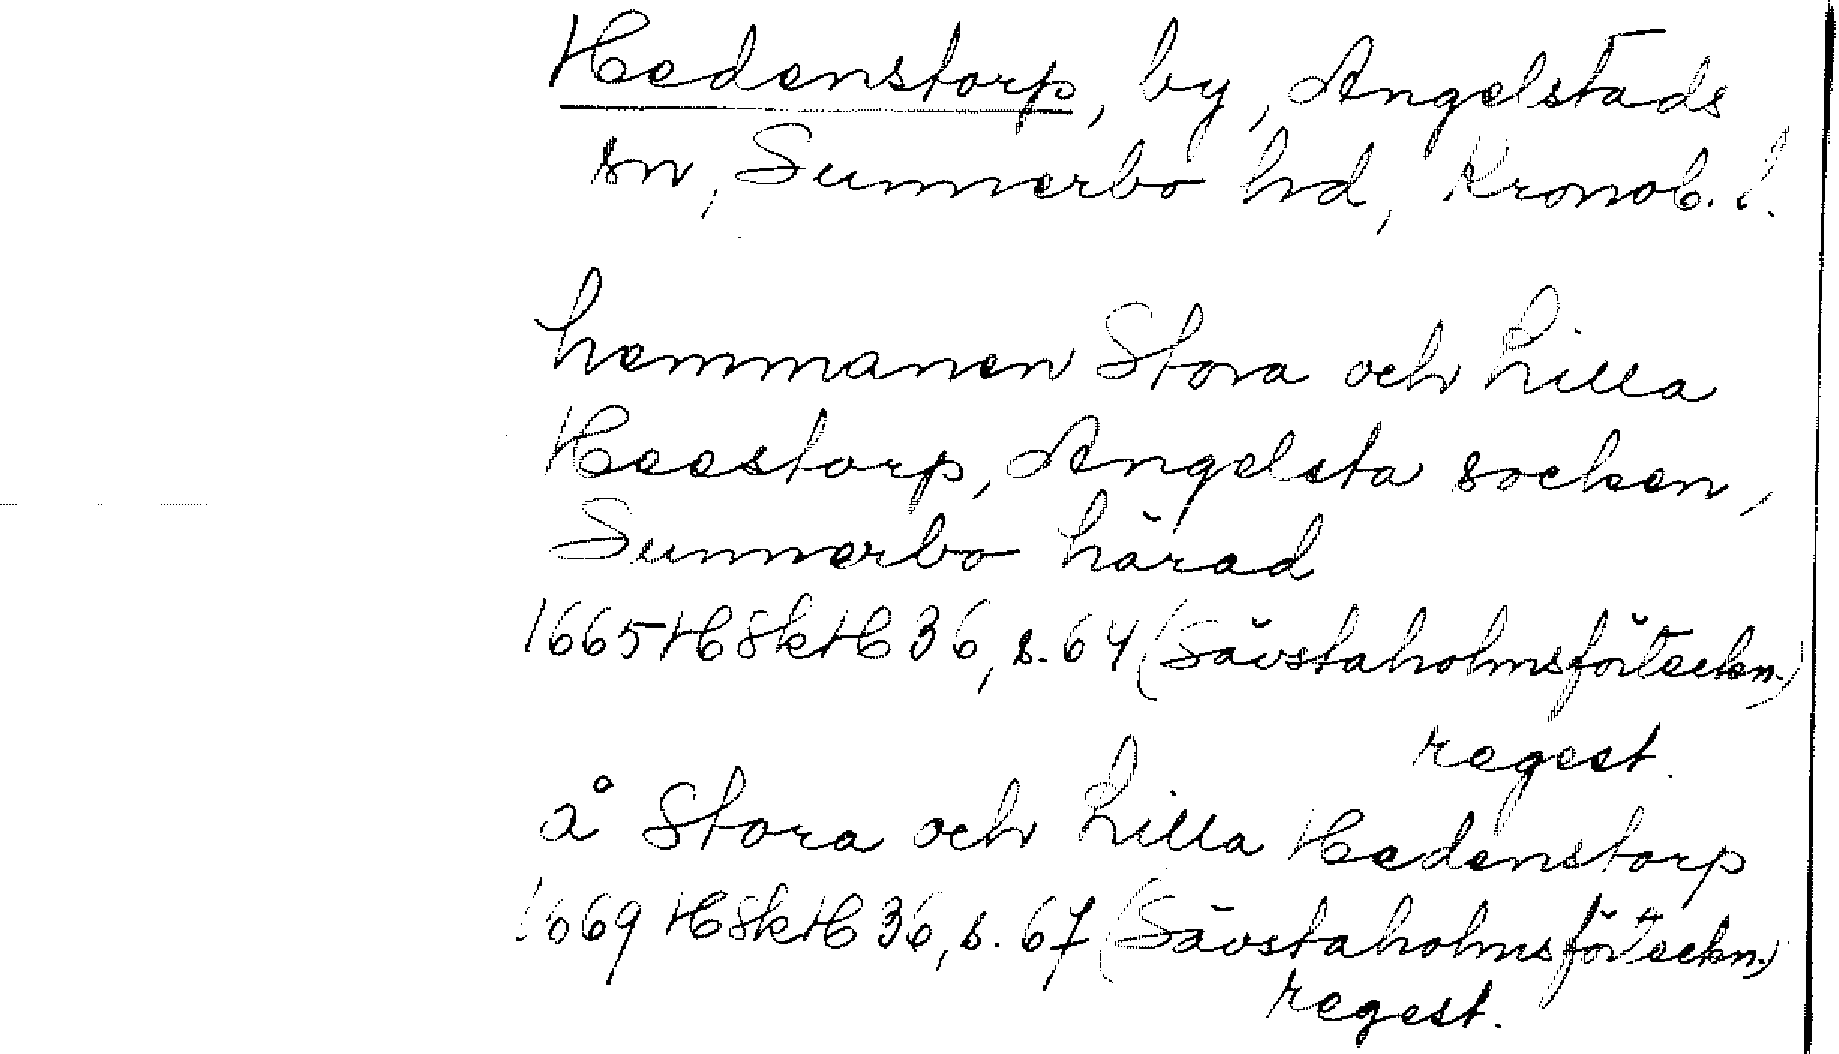 Hedenstorp, by, Angelstads
sn, Sunnerbo hd, Kronob. l.
hemmanen Stora och Lilla
Heestorp, Angelsta socken,
Sunnerbo härad
1665 HSkH 36, s. 64 (Sävstaholmsförteckn.)
regest.
å Stora och Lilla Hedenstorp
1669 HSkH 36, s. 67 (Sävstaholmsförteckn.)
regest.